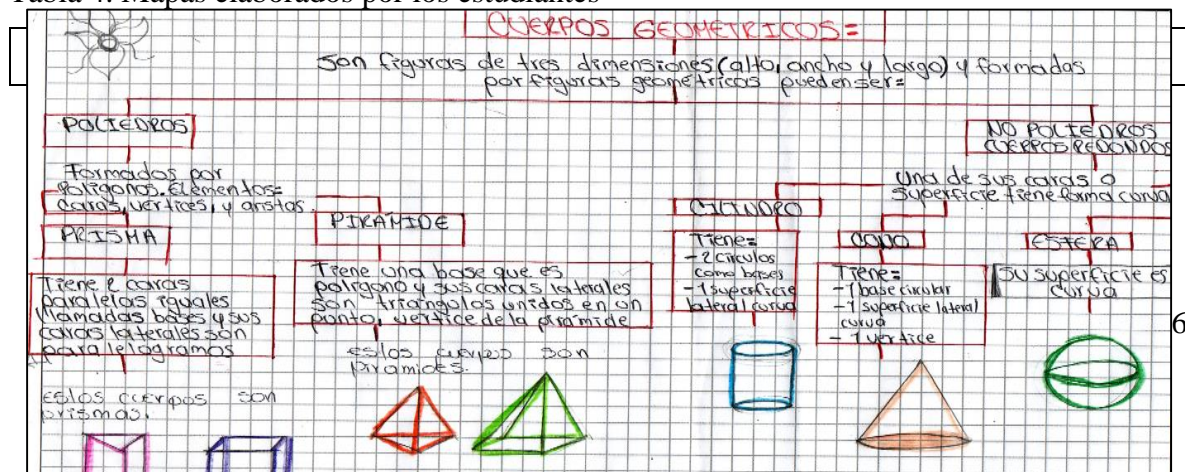 Tabla 4. Mapas elaborados por los estudiantes
CUERPOS GEOMETRICOS=
Son figuras de tres dimensiones (alto, ancho y largo) y formadas
por figuras geométricas pueden ser=
POLIEDROS
Formados por
polígonos. Elementos=
caras, vertices, y aristas
PRISMA
Tiene 2 caras
paralelas iguales
llamadas bases y sus
caras laterales son
paralelogramos
estos cuerpos son
prismas.
PIRAMIDE
Tiene una base que es
polígono y sus caras laterales
son triangulos unidos en un
punto, vertice de la piramide
estos cuerpos son
piramides.
NO POLIEDROS
CUERPOS REDONDOS
Una de sus caras o
superficie tiene forma curva
CILINDRO
Tiene=
-2 circulos
como bases
-1 superficie
lateral curva
CONO
Tiene=
-1 base circular
-1 superficie lateral
curva
-1 vertice
ESFERA
Su superficie es
curva
6